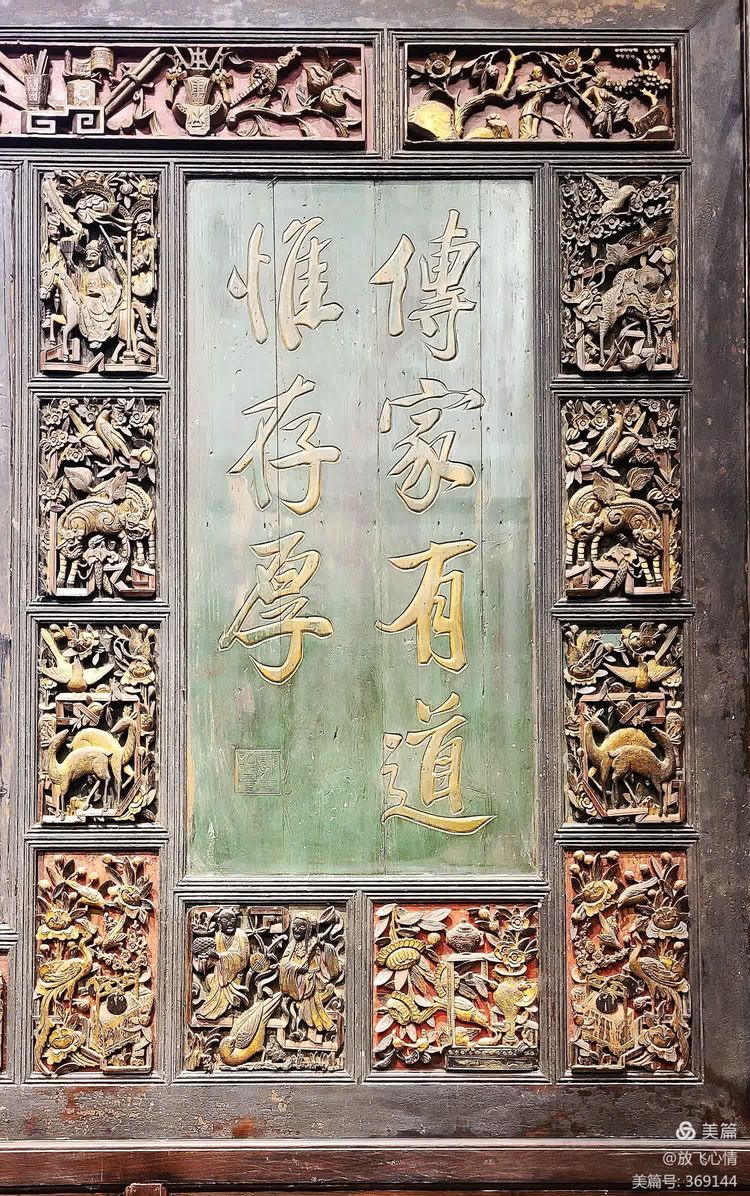 傳家有道
惟存厚
美篇
@放飞心情
美篇号: 369144